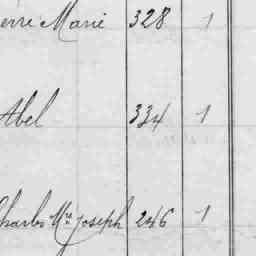 erre Marie 328 1
Abel 334 1
Charles Mie Joseph 246 1